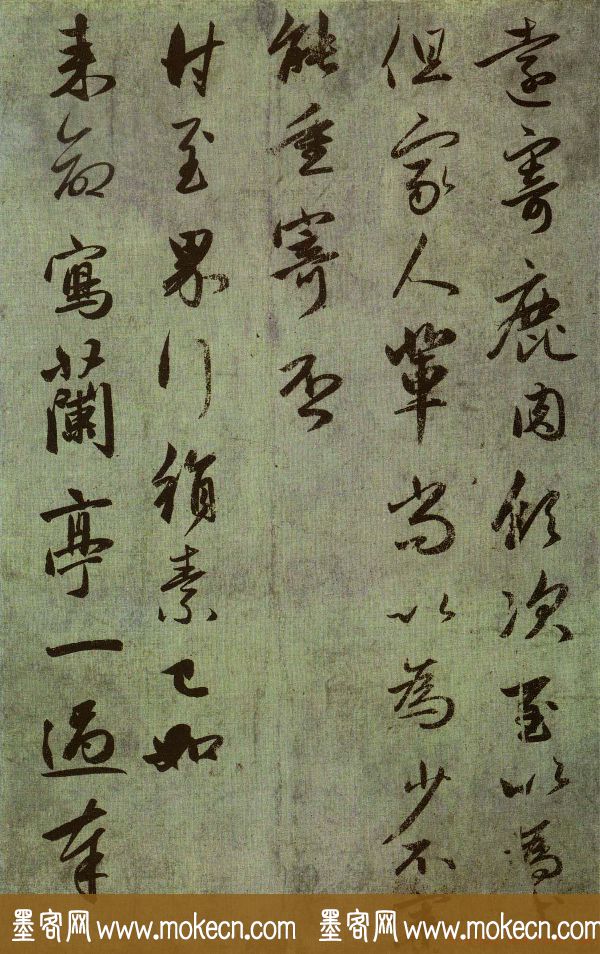 遠寄鹿肉領次至以為
但家人輩尚以為少不
能重寄否
付至界行絹素已如
来命寫蘭亭一過奉
墨客网 www.mokecn.com 墨客网 www.mokecn.com